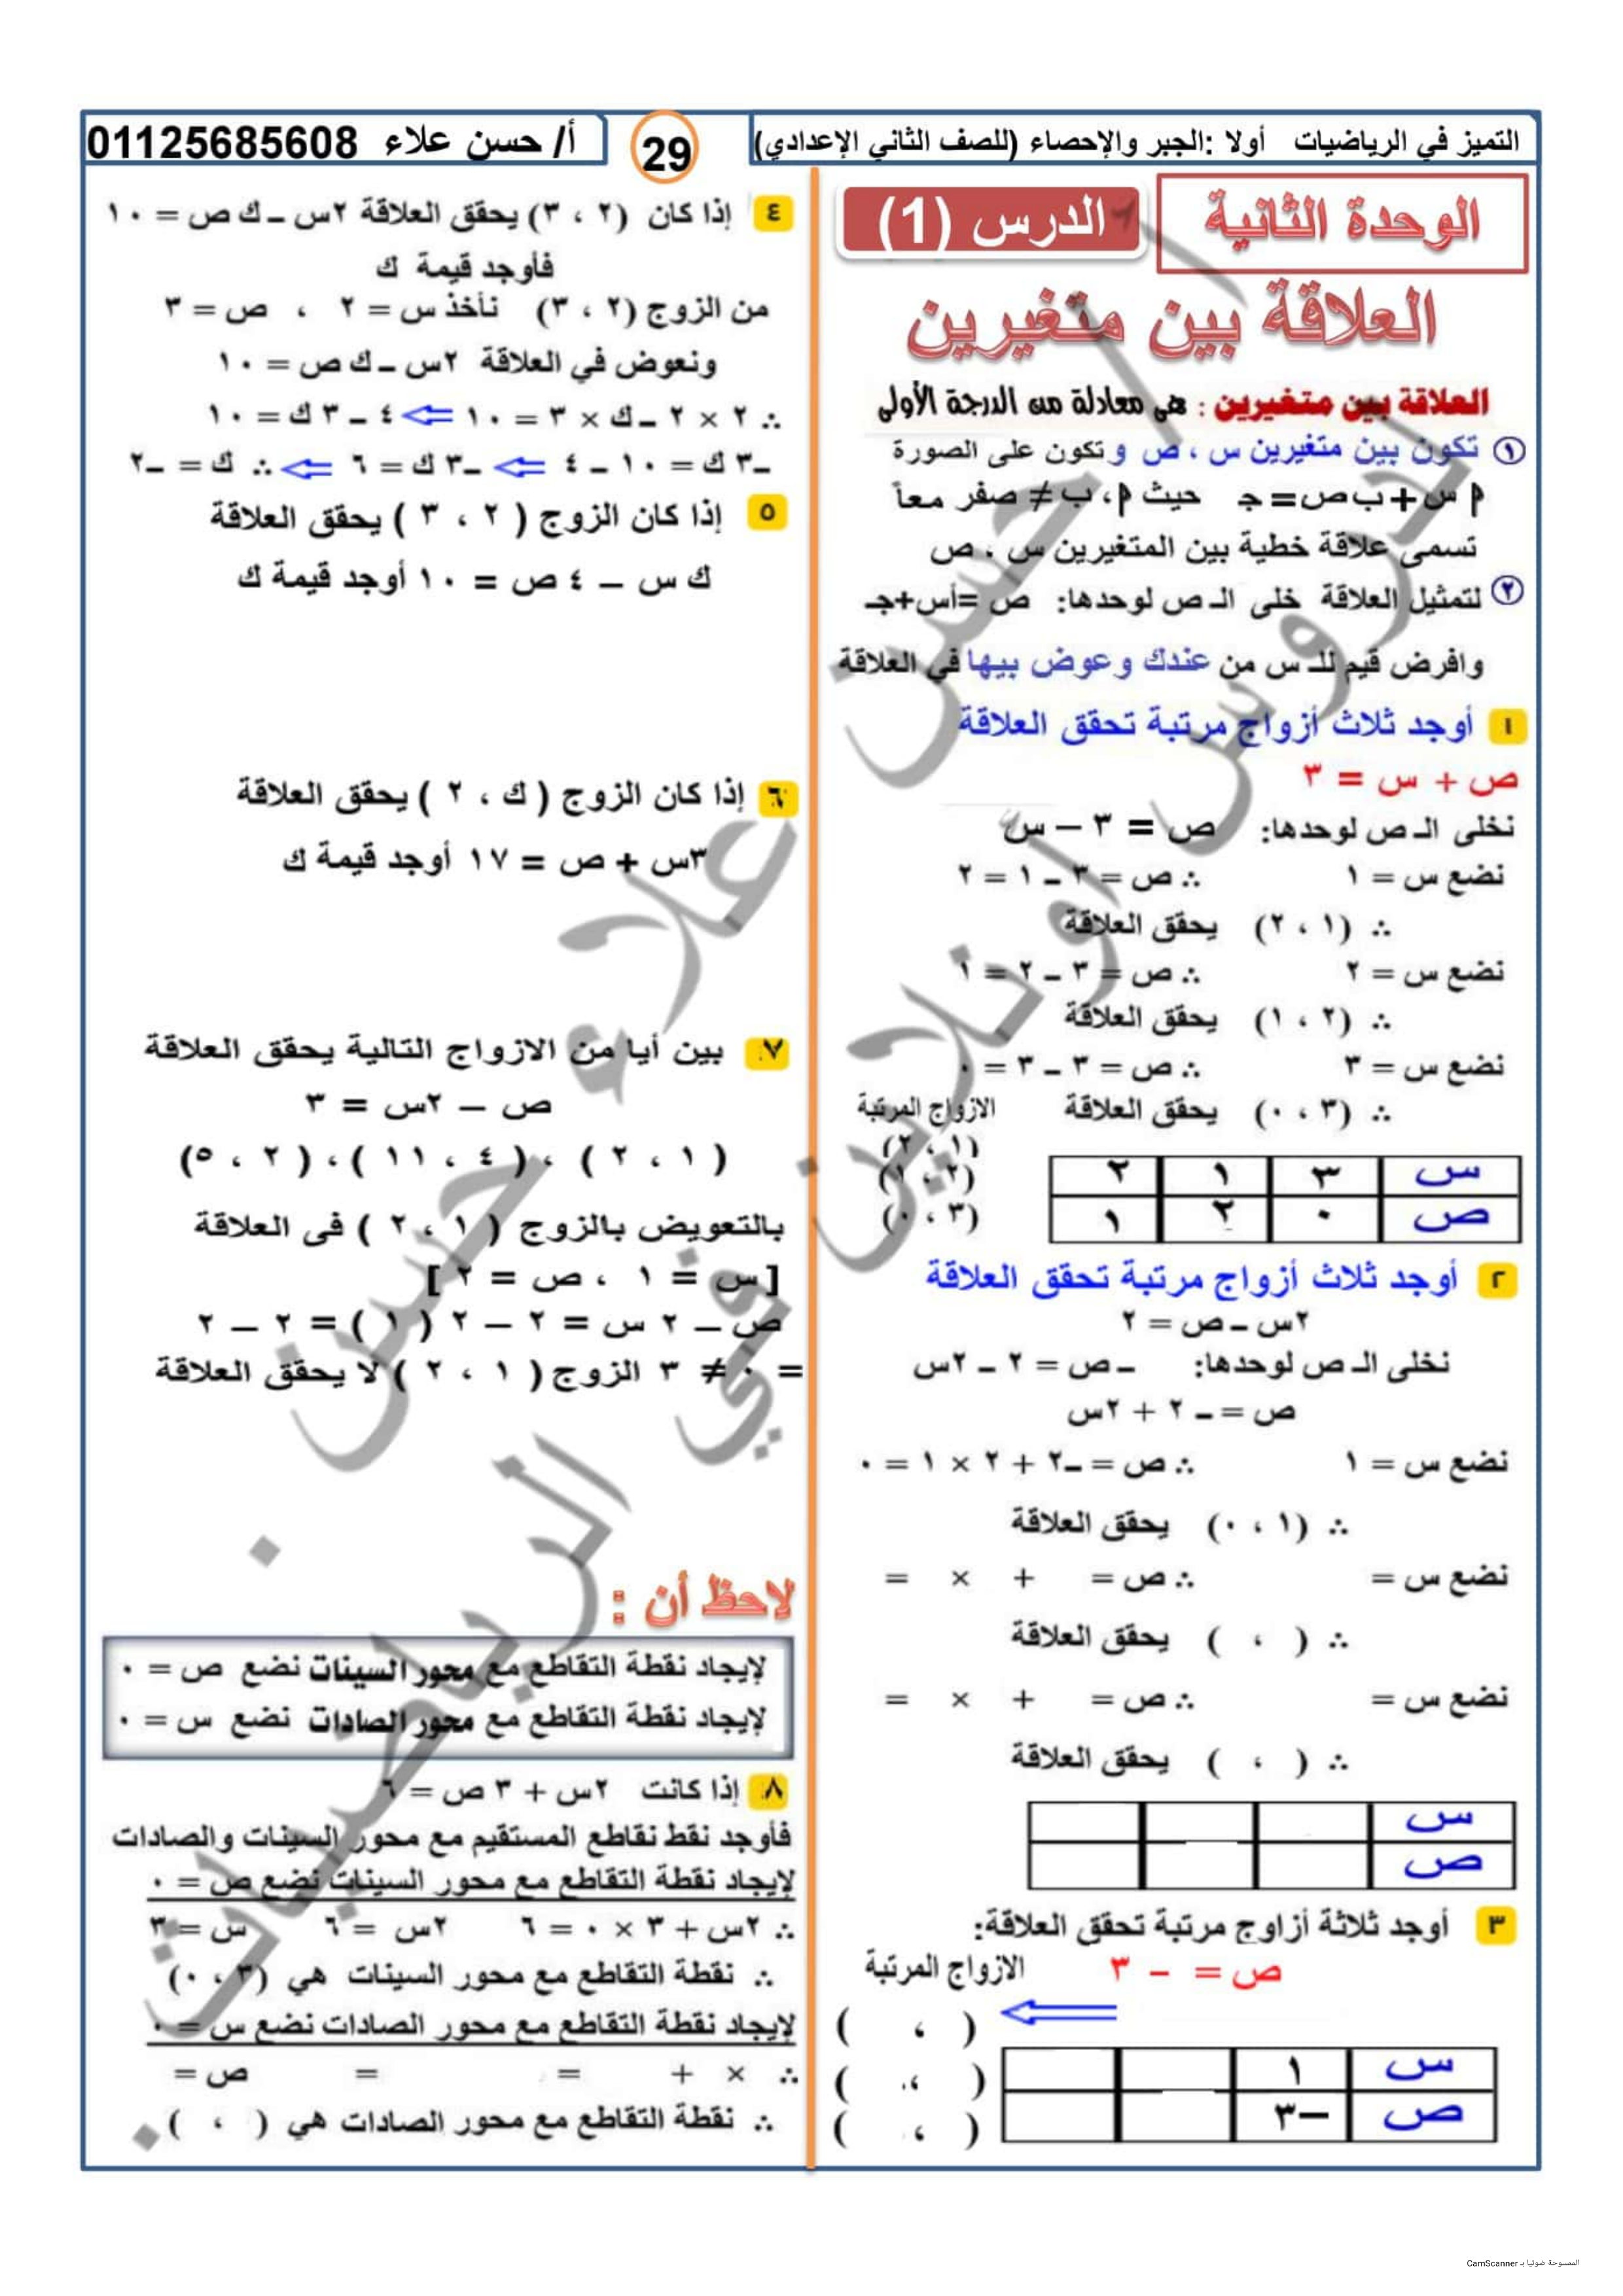 التميز في الرياضيات أولا :الجبر والإحصاء (للصف الثاني الإعدادي)
29
أ/ حسن علاء 01125685608
الوحدة الثانية
الدرس (1)
العلاقة بين متغيرين
العلاقة بين متغيرين : هى معادلة من الدرجة الأولى
١ تكون بين متغيرين س ، ص و تكون على الصورة
أ س + ب ص = جـ حيث أ ، ب ≠ صفر معاً
تسمى علاقة خطية بين المتغيرين س ، ص
٢ لتمثيل العلاقة خلى الـ ص لوحدها: ص =أس+جـ
وافرض قيم للـ س من عندك وعوض بيها في العلاقة
١ أوجد ثلاث أزواج مرتبة تحقق العلاقة
ص + س = ٣
نخلى الـ ص لوحدها: ص = ٣ – س
نضع س = ١ ∴ ص = ٣ – ١ = ٢
∴ (١ ، ٢) يحقق العلاقة
نضع س = ٢ ∴ ص = ٣ – ٢ = ١
∴ (٢ ، ١) يحقق العلاقة
نضع س = ٣ ∴ ص = ٣ – ٣ = ٠
∴ (٣ ، ٠) يحقق العلاقة
الازواج المرتبة
(١ ، ٢)
(٢ ، ١)
(٣ ، ٠)
س ٣ ١ ٢
ص ٠ ٢ ١
٢ أوجد ثلاث أزواج مرتبة تحقق العلاقة
٢س – ص = ٢
نخلى الـ ص لوحدها: – ص = ٢ – ٢س
ص = – ٢ + ٢س
نضع س = ١ ∴ ص = –٢ + ٢ × ١ = ٠
∴ (١ ، ٠) يحقق العلاقة
نضع س = ∴ ص = + × =
∴ ( ، ) يحقق العلاقة
نضع س = ∴ ص = + × =
∴ ( ، ) يحقق العلاقة
س
ص
٣ أوجد ثلاثة أزاوج مرتبة تحقق العلاقة:
ص = – ٣
الازواج المرتبة
( ، )
( ، )
( ، )
س ١
ص –٣
٤ إذا كان (٢ ، ٣) يحقق العلاقة ٢س – ك ص = ١٠
فأوجد قيمة ك
من الزوج (٢ ، ٣) نأخذ س = ٢ ، ص = ٣
ونعوض في العلاقة ٢س – ك ص = ١٠
∴ ٢ × ٢ – ك × ٣ = ١٠ ⇐ ٤ – ٣ ك = ١٠
–٣ ك = ١٠ – ٤ ⇐ –٣ ك = ٦ ⇐ ∴ ك = –٢
٥ إذا كان الزوج ( ٢ ، ٣ ) يحقق العلاقة
ك س – ٤ ص = ١٠ أوجد قيمة ك
٦ إذا كان الزوج ( ك ، ٢ ) يحقق العلاقة
٣س + ص = ١٧ أوجد قيمة ك
٧ بين أيا من الازواج التالية يحقق العلاقة
ص – ٢س = ٣
( ١ ، ٢ ) ، ( ٤ ، ١١ ) ، ( ٢ ، ٥)
بالتعويض بالزوج ( ١ ، ٢ ) فى العلاقة
[ س = ١ ، ص = ٢ ]
ص – ٢ س = ٢ – ٢ ( ١ ) = ٢ – ٢
= ٠ ≠ ٣ الزوج ( ١ ، ٢ ) لا يحقق العلاقة
لاحظ أن :
لإيجاد نقطة التقاطع مع محور السينات نضع ص = ٠
لإيجاد نقطة التقاطع مع محور الصادات نضع س = ٠
٨ إذا كانت ٢س + ٣ ص = ٦
فأوجد نقط نقاطع المستقيم مع محور السينات والصادات
لإيجاد نقطة التقاطع مع محور السينات نضع ص = ٠
∴ ٢س + ٣ × ٠ = ٦ ٢س = ٦ س = ٣
∴ نقطة التقاطع مع محور السينات هي (٣ ، ٠)
لإيجاد نقطة التقاطع مع محور الصادات نضع س = ٠
∴ × + = = ص =
∴ نقطة التقاطع مع محور الصادات هي ( ، )
ا/ حسن علاء . حسن
دروس اونلاين في الرياضيات .
الممسوحة ضوئيا بـ CamScanner